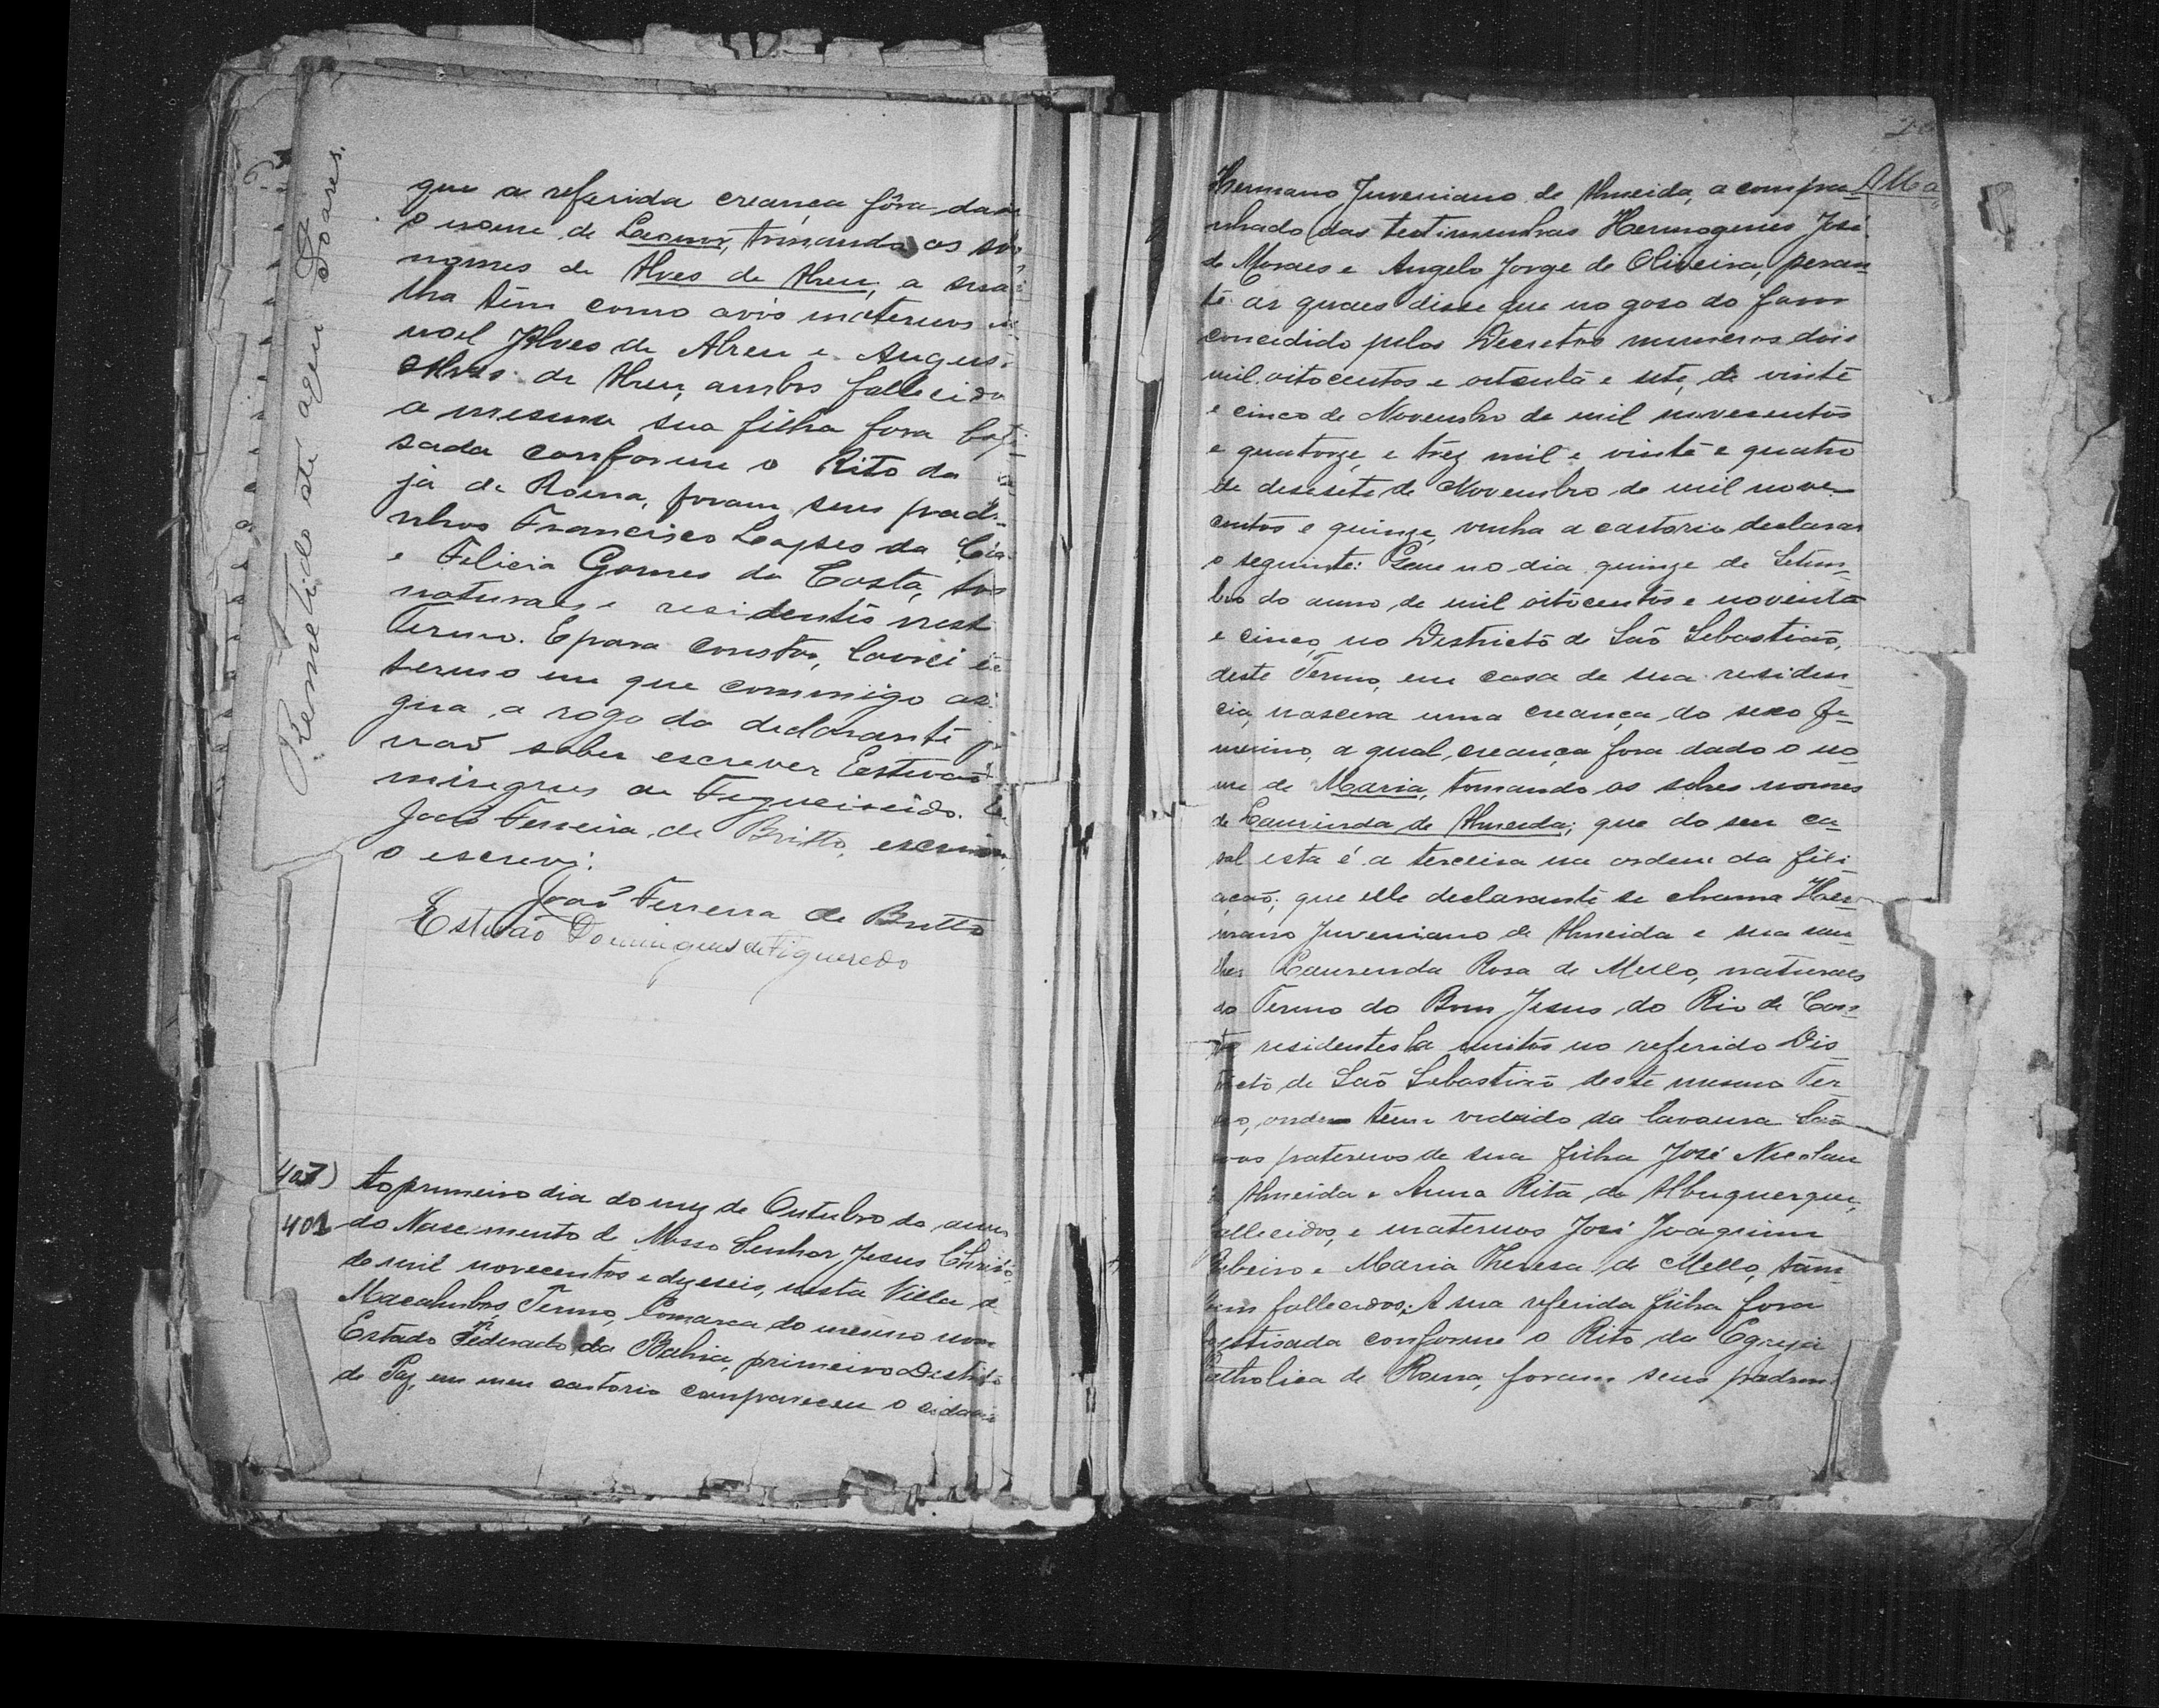 Remettido até aqui Soares.
que a referida creança fôra dado
o nome de Leonor, tomando os so
nomes de Alves de Abreu, a sua
lha têm como avós maternos
noel Alves de Abreu e Augus
Alves de Abreu, ambos fallecido
a mesma sua filha fora bapti
sada conforme o Rito da
ja de Roma, foram seus padri-
nhos Francisco Lopes da
e Felicia Gomes da Costa, tos
naturaes e residentes nest
Termo. E para constar, lavrei
termo em que commigo as
gna, a rogo da declarante
não saber escrever Estevão
mingues de Figueiredo.
João Ferreira de Britto, escrivão
o escrevi.
João Ferreira de Britto
Estevão Domingues de Figueredo
407)
401
Ao primeiro dia do mez de Outubro do anno
do Nascimento de Nosso Senhor Jesus Christo
de mil novecentos e dezeseis, nesta Villa de
Macahubas, Termo, Comarca do mesmo nom
Estado Federado da Bahia, primeiro Districto
de Paz, em meu cartorio compareceu o cidadão
Hermano Juveniano de Almeida, a compa-
nhado das testimunhas Hermogenes José
de Moraes e Angelo Jorge de Oliveira, peran-
te as quaes disse que no goso do favor
concedido pelos Decretos numeros dois
mil oitocentos e oitenta e sete, de vinte
e cinco de Novembro de mil novecentos
e quatorze, e trez mil e vinte e quatro
de desesete de Novembro de mil nove-
centos e quinze, vinha a cartorio declarar
o seguinte: Que no dia quinze de Setem-
bro do anno de mil oitocentos e noventa
e cinco, no Districto de São Sebastião,
deste Termo, em casa de sua residen-
cia, nascera uma creança do sexo fe-
menino, a qual creança fora dado o no-
me de Maria, tomando os sobres nomes
de Laurinda de Almeida; que do seu ca-
sal esta é a terceira na ordem da fili-
ação; que elle declarante se chama Her-
mano Juveniano de Almeida e sua mu-
lher Laurenda Rosa de Mello, naturaes
do Termo do Bom Jesus do Rio de Con-
tas residentes ha muitos no referido Dis-
tricto de São Sebastião deste mesmo Ter
mo, onde têm vivido da lavoura São
avos paternos de sua filha José Nicolau
de Almeida e Anna Rita de Albuquerque,
fallecidos, e maternos José Joaquim
Ribeiro e Maria Theresa de Mello, tam-
bem fallecidos; A sua referida filha fora
baptisada conforme o Rito da Egreja
Catholica de Roma, foram seus padrin